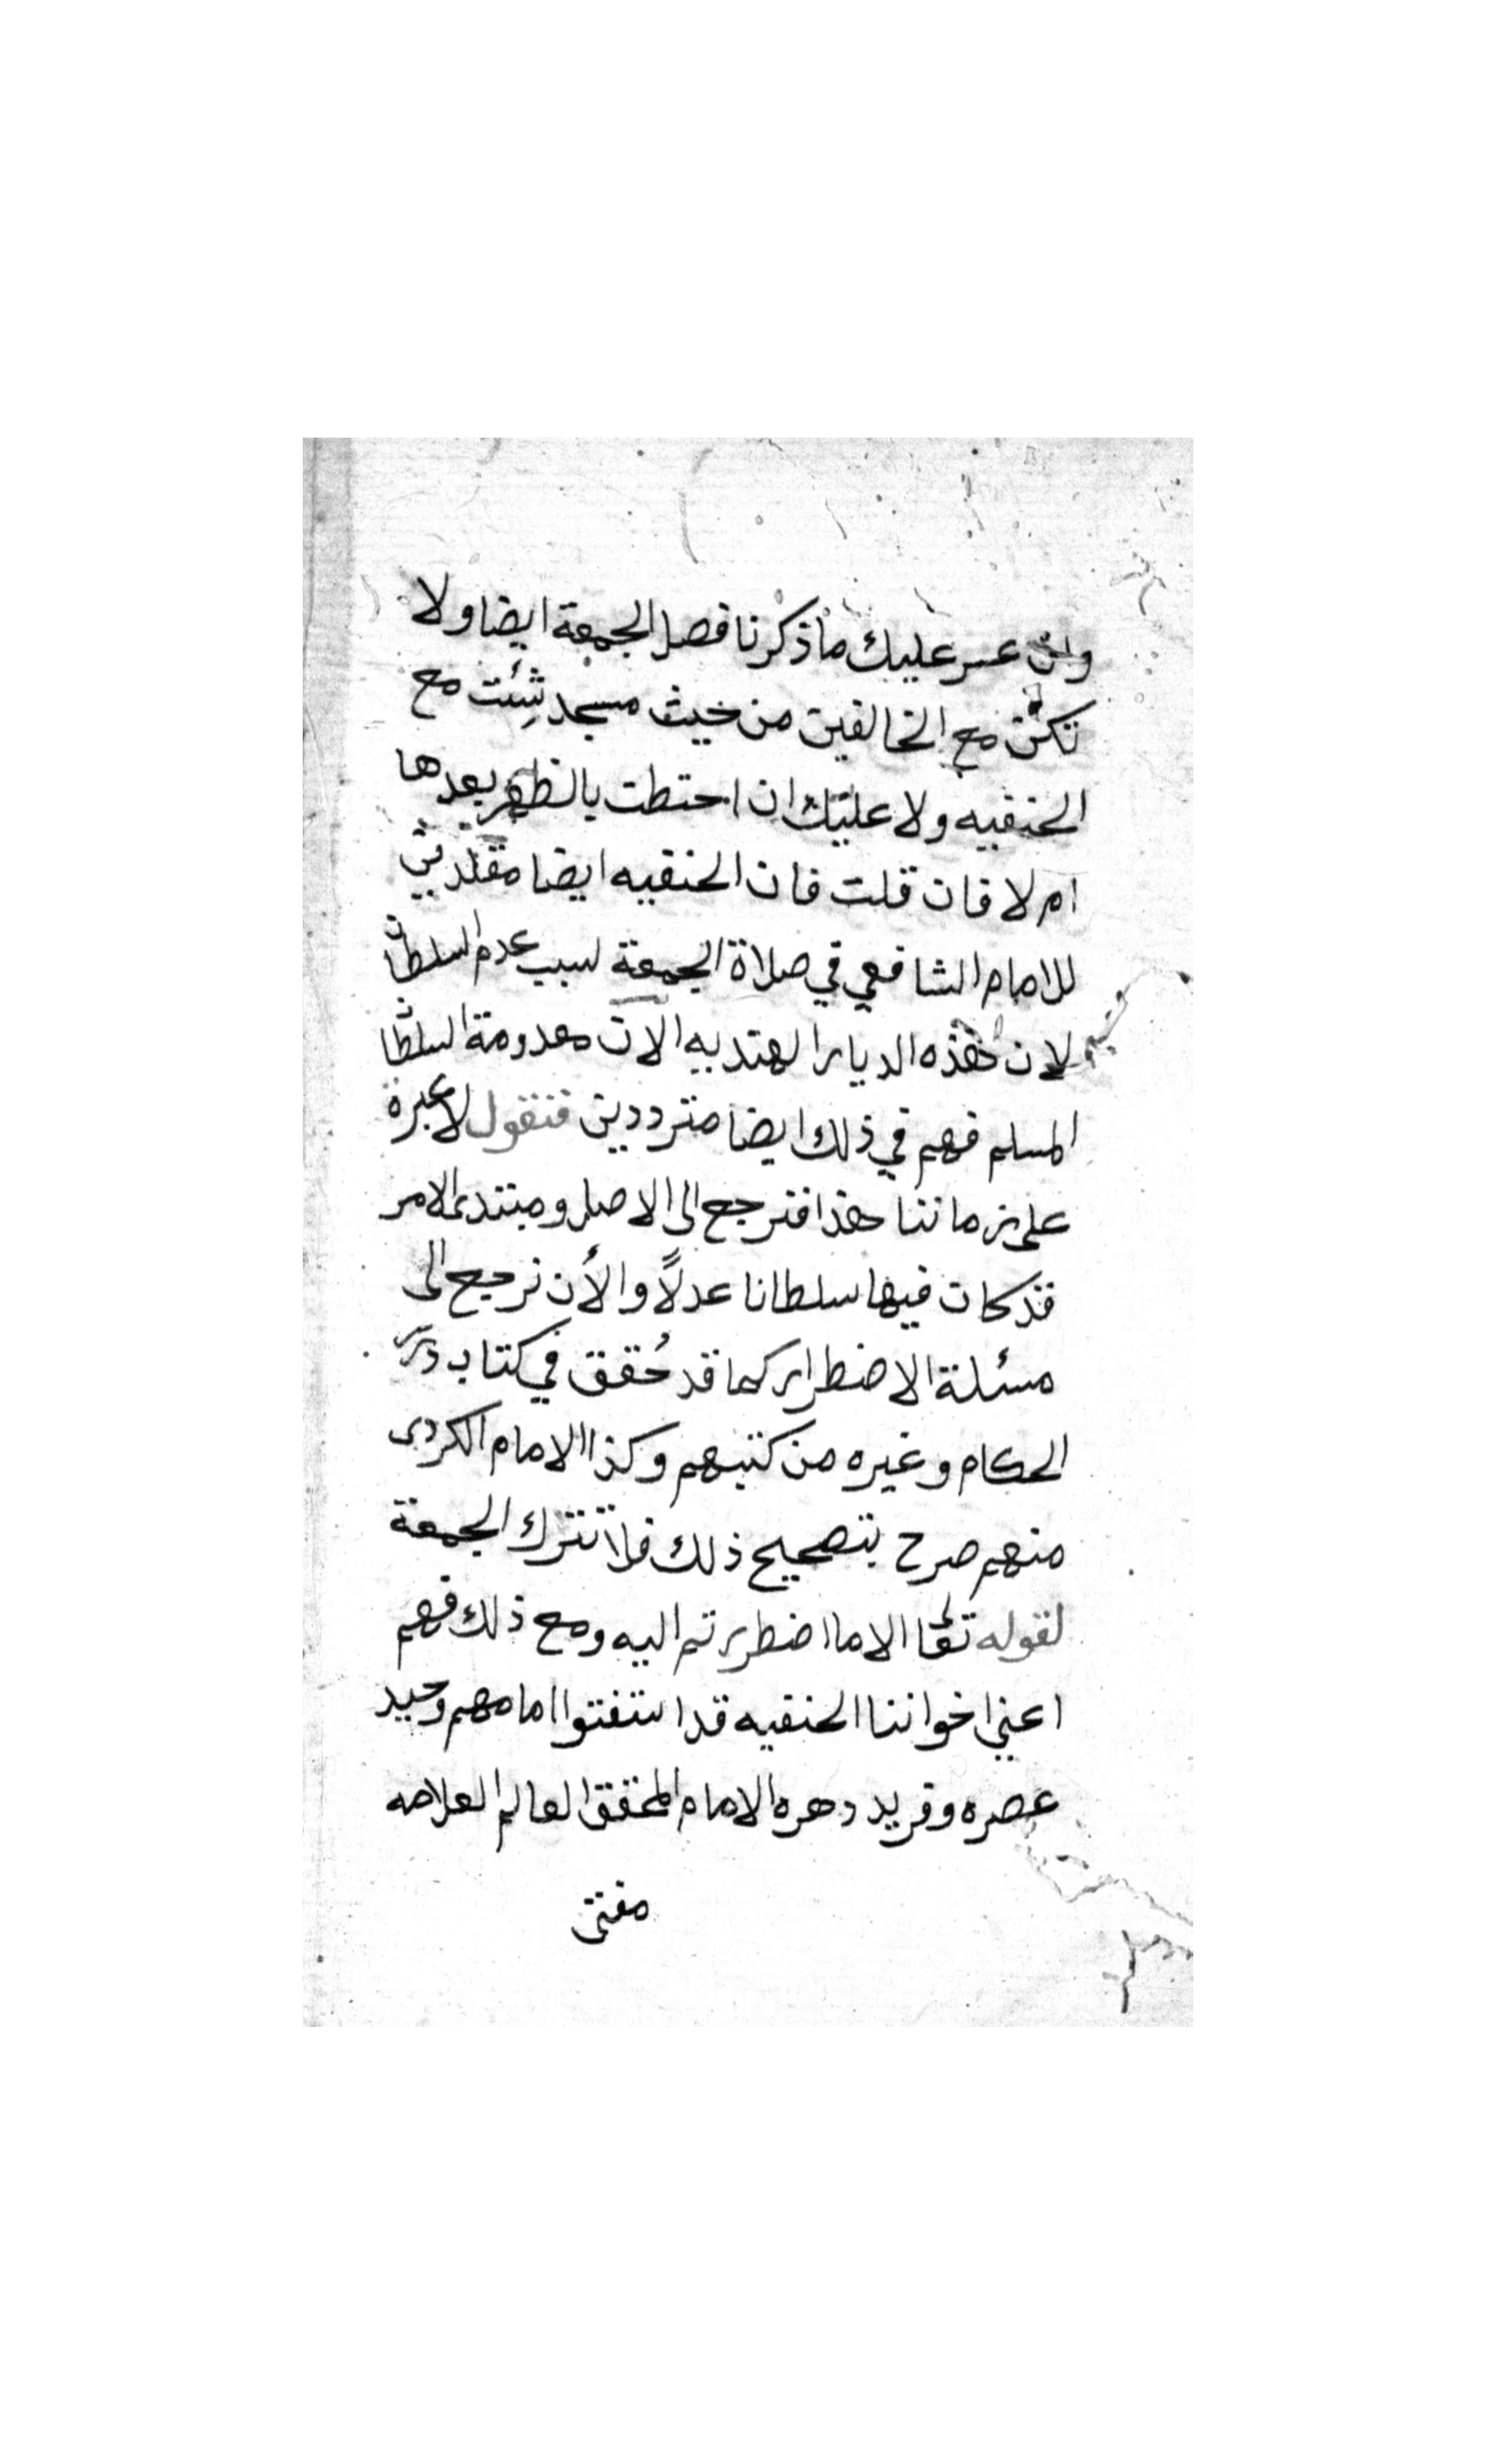 وان عسر عليك ماذكرنا فصل الجمعة ايضا ولا
تكن مع المخالفين من حيث مسجد شِئت مع
الحنفيه ولا عليك ان احتطت بالظهر بعدها
ام لا فان قلت فان الحنفيه ايضا مقلدين
للامام الشافعي في صلاة الجمعة لسبب عدم السلطان
لان هذه الديار الهنديه الان معدومة السلطان
المسلم فهم في ذلك ايضا مترددين فنقول لاعبرة
على زماننا هذا فنرجع الى الاصل ومبتدى الامر
قد كان فيها سلطانا عدلاً والأن نرجع الى
مسئلة الاضطرار كما قد حُقق في كتاب درر
الحكام وغيره من كتبهم وكذا الامام الكردى
منهم صرح بتصحيح ذلك فلا تترك الجمعة
لقوله تعالى الا ما اضطررتم اليه ومع ذلك فهم
اعني اخواننا الحنفيه قد استفتوا امامهم وحيد
عصره وفريد دهره الامام المحقق العالم العلامه
مفتى